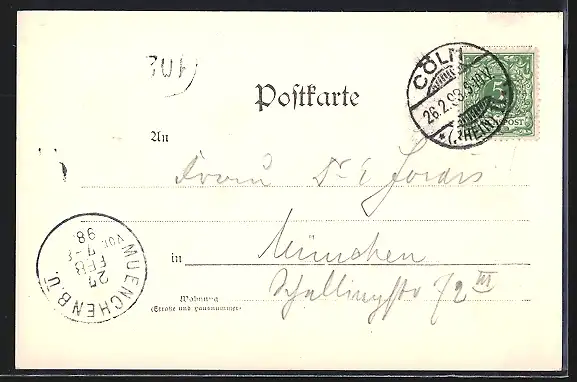 CÖLN
26.2.98.5-6N.
* (RHEIN) 11. *
5
POST
Postkarte
An
Frau Dr. E Jordis
in München
Schellingstr 72 III
Wohnung
(Straße und Hausnummer)
MUENCHEN B.U.
27
FEB
VOR. 7-8
98.